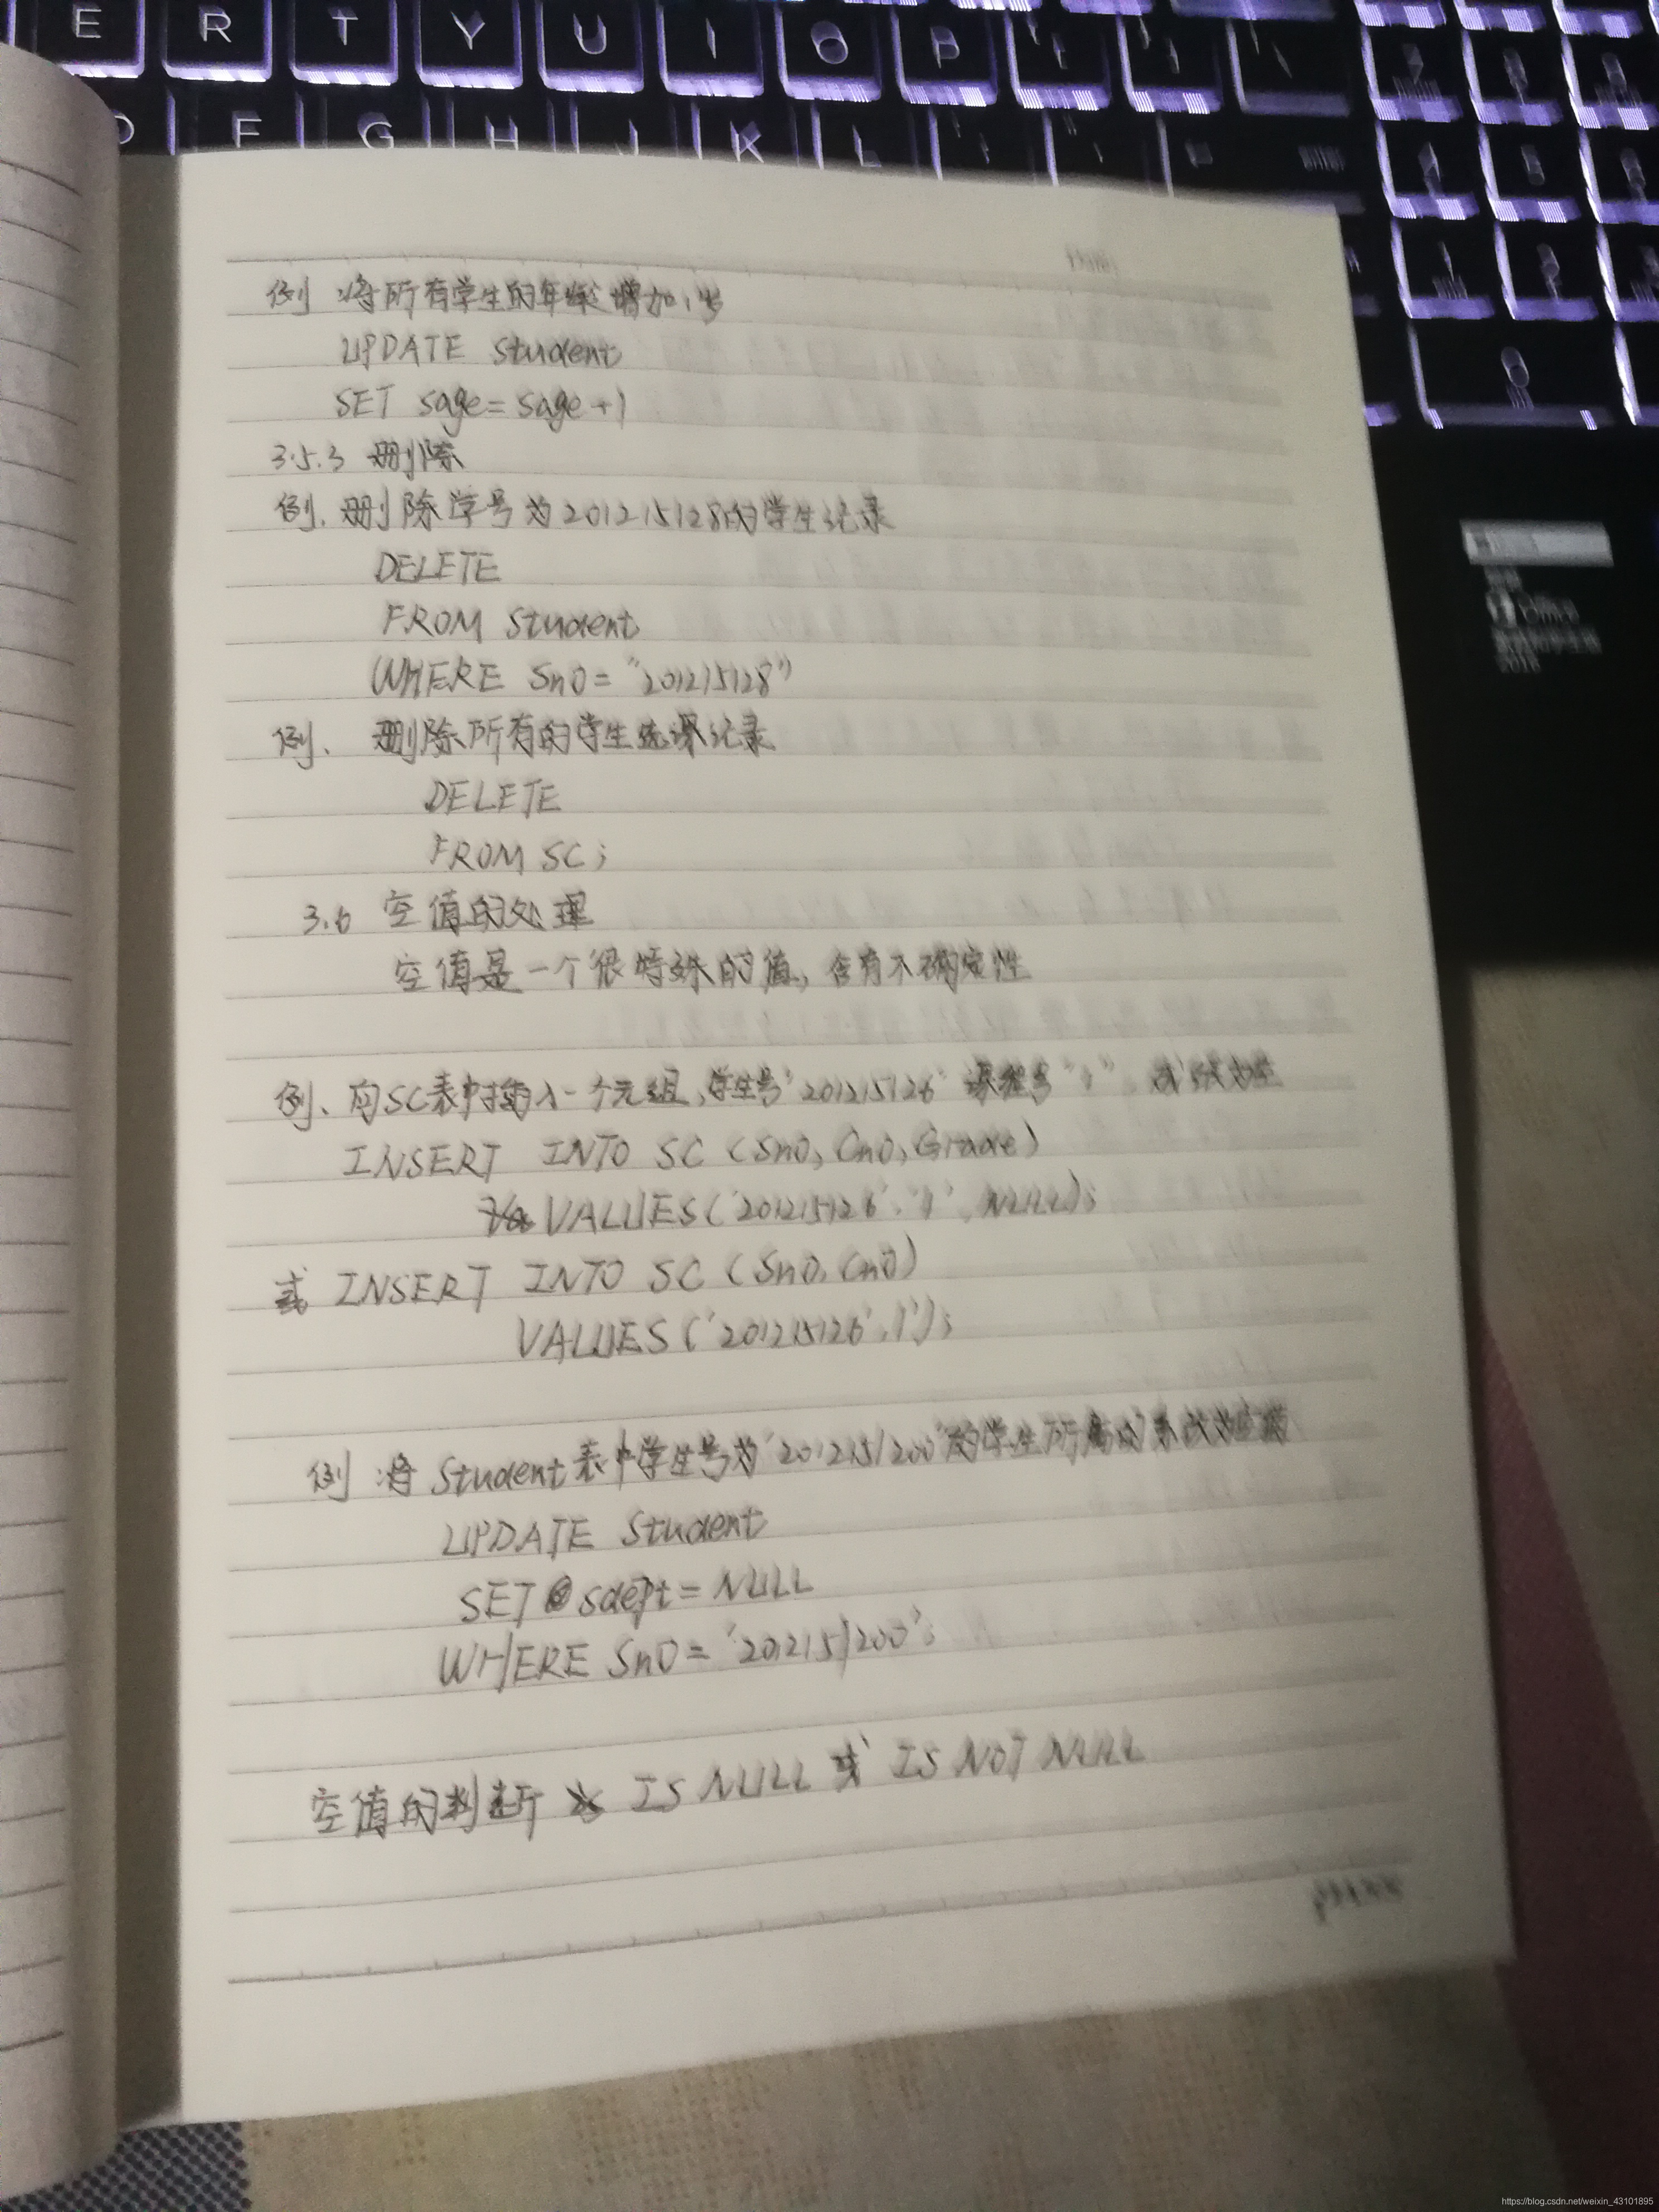 E R T Y U I O P
D F G H J K L
例 将所有学生的年龄增加1岁
UPDATE Student
SET sage=sage+1
3.5.3 删除
例.删除学号为201215128的学生记录
DELETE
FROM Student
WHERE SnO="201215128"
例、删除所有的学生选课记录
DELETE
FROM SC;
3.6 空值的处理
空值是一个很特殊的值,含有不确定性
例、向SC表中插入一个元组,学生号'201215126' 课程号"1" 成绩为空
INSERT INTO SC (SnO,CnO,Grade)
VALUES('201215126','1',NULL);
或 INSERT INTO SC (SnO,CnO)
VALUES('201215126',1');
例 将Student表中学生号为'201215200'的学生所属的系改为空值
UPDATE Student
SET sdept=NULL
WHERE SnO='201215200';
空值的判断 IS NULL 或 IS NOT NULL
Office
2016
https://blog.csdn.net/weixin_43101895